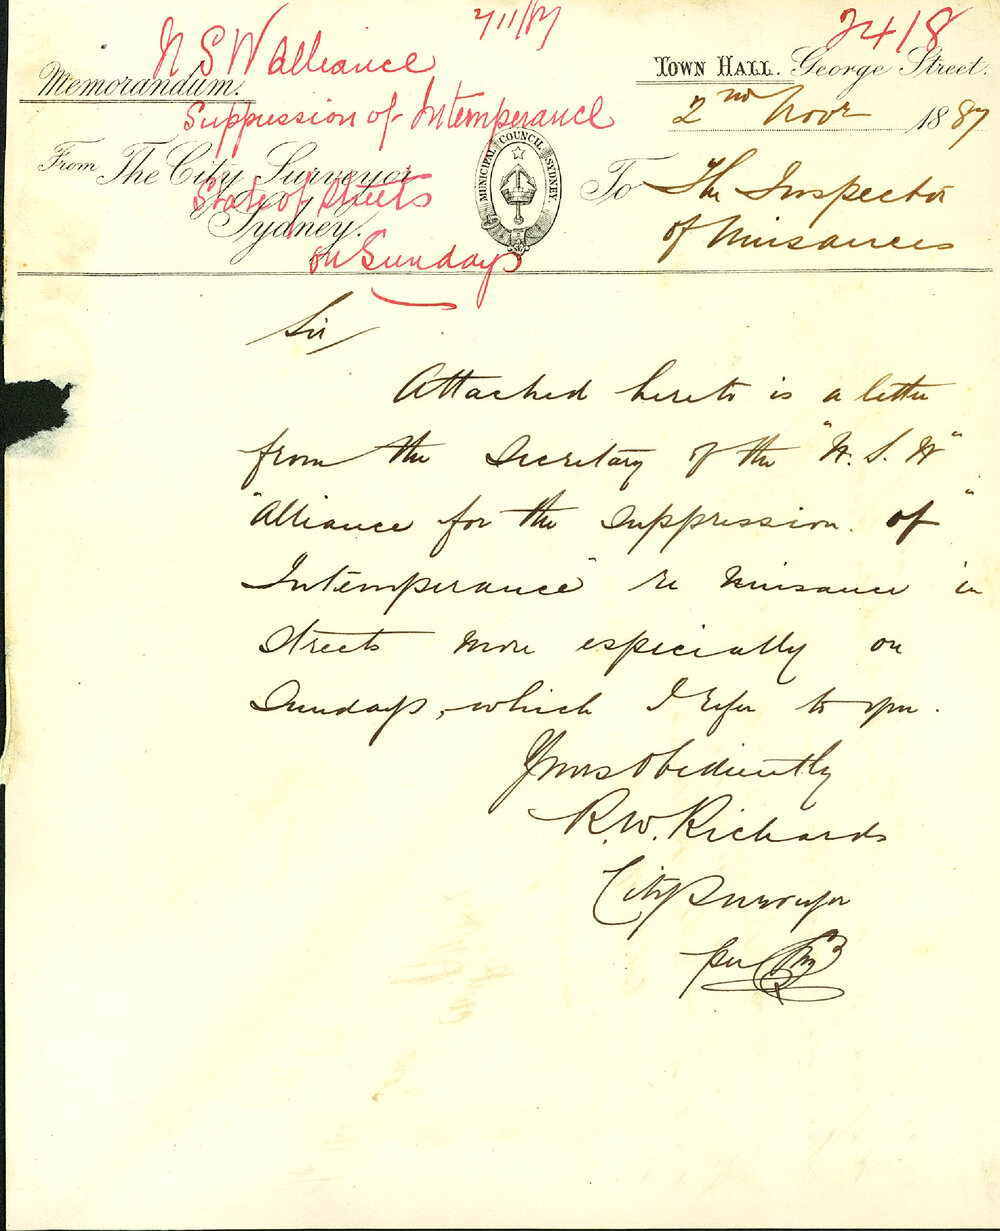 2/11/87
2418
N S W Alliance
Suppression of Intemperance
State of Streets
on Sundays
Memorandum.
TOWN HALL. George Street.
2nd Novr 1887
From The City Surveyor
Sydney.
MUNICIPAL COUNCIL SYDNEY.
To The Inspector
of Nuisances
Sir
Attached hereto is a letter
from the Secretary of the "N. S. W"
"Alliance for the Suppression of"
Intemperance" re Nuisance in
Streets more especially on
Sundays, which I refer to you.
Yours Obediently
R. W. Richards
City Surveyor
per